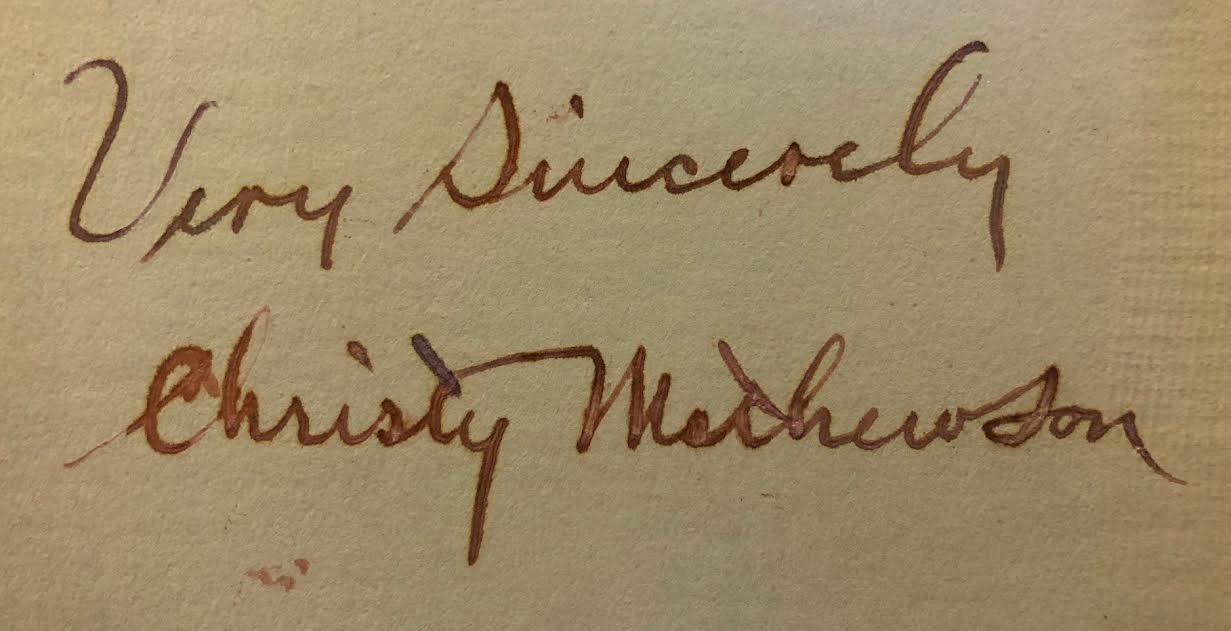 Very Sincerely
Christy Mathewson